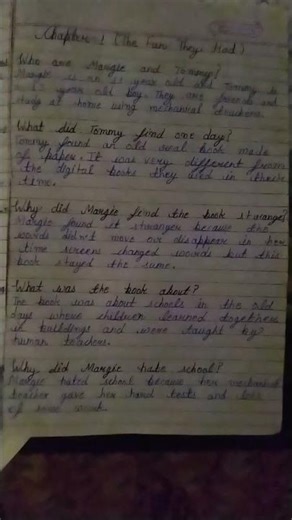 Chapter 1 (The Fun They Had)
Who are Margie and Tommy?
Margie is an 11 year old and Tommy is
13 year old boy. They are friends and
study at home using mechanical teachers.
What did Tommy find one day?
Tommy found an old real book made
of paper. It was very different from
the digital books they used in there
time.
Why did Margie find the book strange?
Margie found it stranger because the
words didn't move or disappear in her
time screen changed words but this
book stayed the same.
What was the book about?
The book was about schools in the old
days where children learned together
in buildings and were taught by
human teachers.
Why did Margie hate school?
Margie hated school because her mechanical
teacher gave her hard tests and lots
of home work.